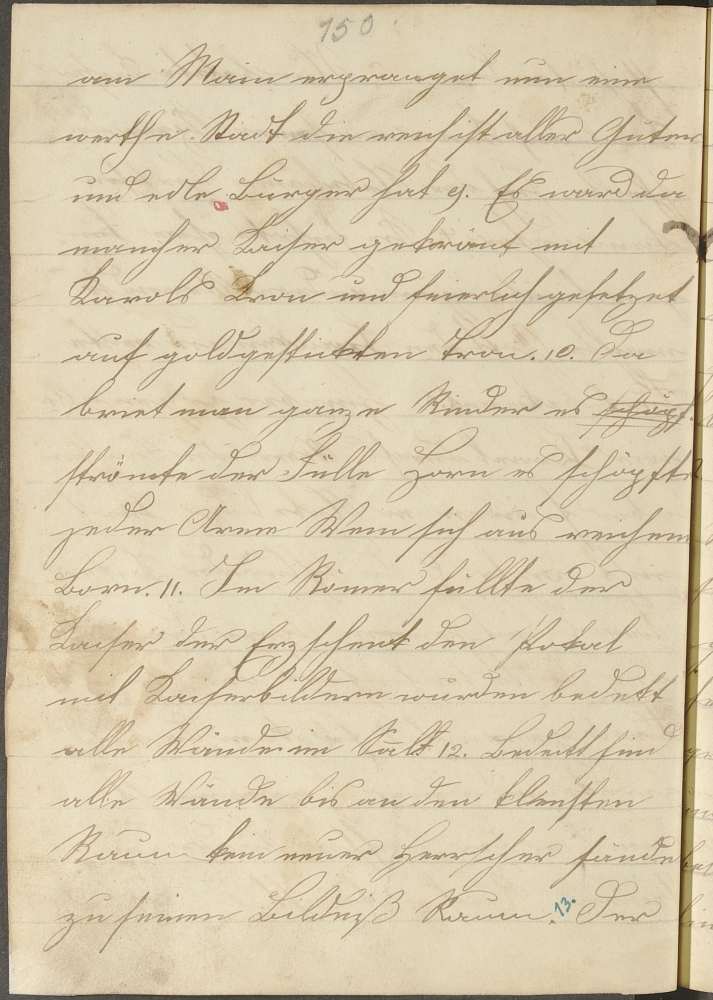 150.
am Main erpranget nun eine
werthe Stadt die reich ist aller Güter
und edle Bürger hat 9. Es ward da
mancher Kaiser gekrönt mit
Karols Kron und feierlich gesetzet
auf goldgestickten Tron. 10. Da
briet man ganze Rinder es schöpf.
strömte der Fülle Horn es schöpfte
jeder Arme Wein sich aus reichem
Born. 11. Im Römer füllte der
Kaiser der Erzschenk den Pokal
mit Kaiserbildern wurden bedekt
alle Wände im Sall 12. Bedeckt sind
alle Wände bis an den klensten
Raum kein neuer Herrscher fände
zu seinen Bildniß Raum. 13. Der